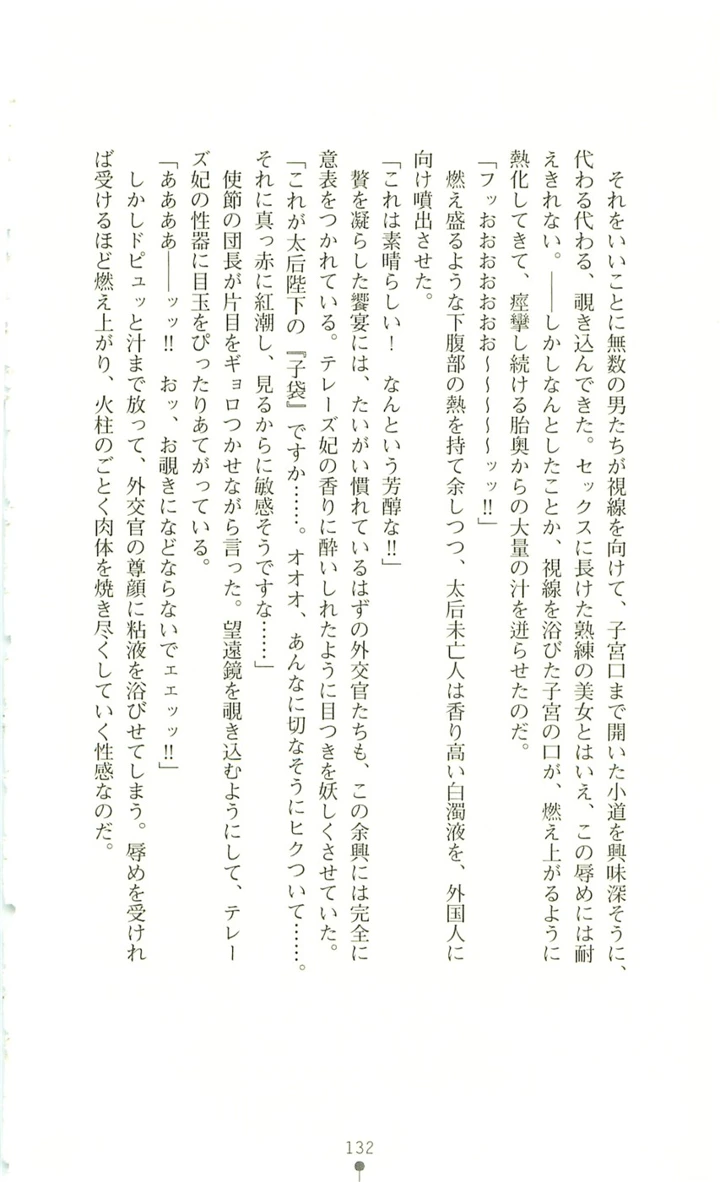 それをいいことに無数の男たちが視線を向けて、子宮口まで開いた小道を興味深そうに、
代わる代わる、覗き込んできた。セックスに長けた熟練の美女とはいえ、この辱めには耐
えきれない。――しかしなんとしたことか、視線を浴びた子宮の口が、燃え上がるように
熱化してきて、痙攣し続ける胎奥からの大量の汁を迸らせたのだ。
「フッおおおおおおお～～～～～ッッ!!」
燃え盛るような下腹部の熱を持て余しつつ、太后未亡人は香り高い白濁液を、外国人に
向け噴出させた。
「これは素晴らしい！　なんという芳醇な!!」
贅を凝らした饗宴には、たいがい慣れているはずの外交官たちも、この余興には完全に
意表をつかれている。テレーズ妃の香りに酔いしれたように目つきを妖しくさせていた。
「これが太后陛下の『子袋』ですか……。オオオ、あんなに切なそうにヒクついて……。
それに真っ赤に紅潮し、見るからに敏感そうですな……」
使節の団長が片目をギョロつかせながら言った。望遠鏡を覗き込むようにして、テレー
ズ妃の性器に目玉をぴったりあてがっている。
「ああああ――ッッ!!　おッ、お覗きになどならないでェェッッ!!」
しかしドピュッと汁まで放って、外交官の尊顔に粘液を浴びせてしまう。辱めを受けれ
ば受けるほど燃え上がり、火柱のごとく肉体を焼き尽くしていく性感なのだ。
132